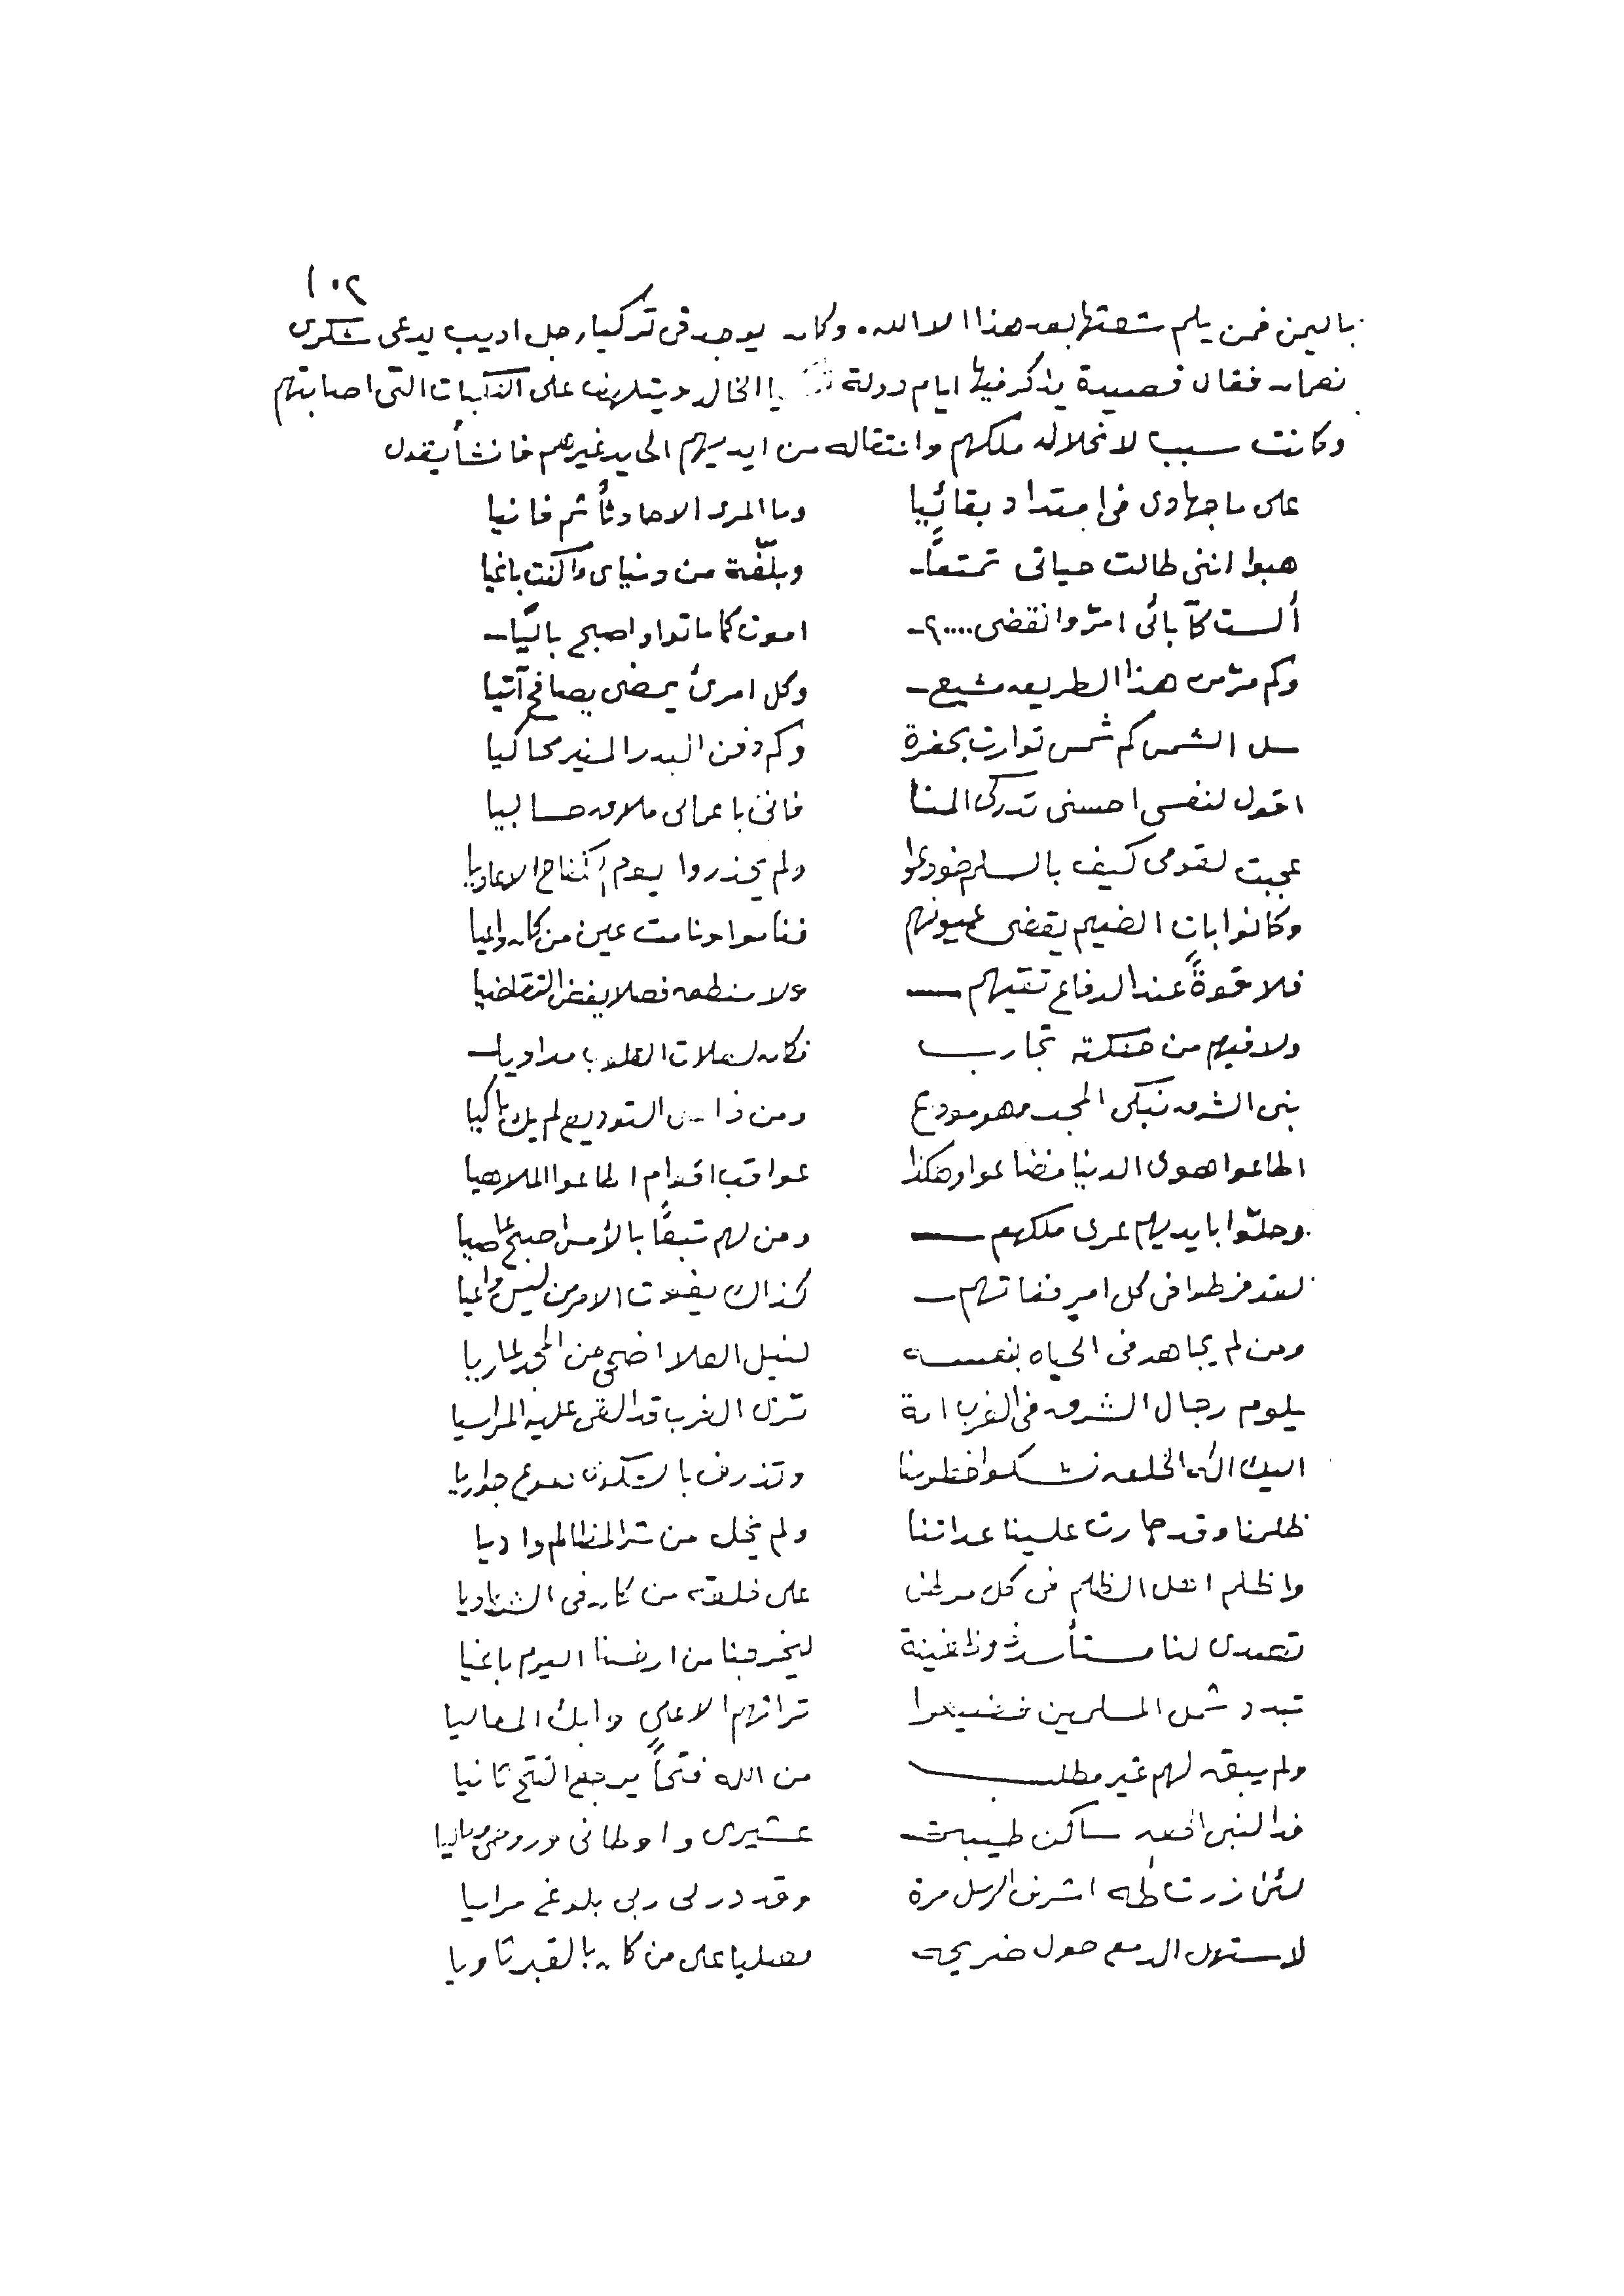 ١٠٢
باليمن فمن يلم شعتها بعد هذا الا الله . وكان يوجد في تركيا رجل اديب يدعى شكري
نعمان فقال قصيدة يذكر فيها ايام دولة الخالد ويتلهف على النكبات التى اصابتهم
وكانت سببا لانحلال ملكهم وانتقاله من ايديهم الى يد غيرهم فانشأ يقول
على ما جهادى فى امتداد بقائيا وما المرء الا حادثاً ثم فانيا
هبوا اننى طالت حياتى تمتعاً - وبلّغة من دنياى ما كنت باغيا
ألست كآبائى امرّ وانقضى ....؟ - اموت كما ماتوا واصبح باليا -
وكم مرّ من هذا الطريق مشيع - وكل امرئ يمضى يصافح آتيا
سل الشمس كم شمس توارت بحفرة وكم دفن البدر المنير محاكيا
اقول لنفسى احسنى تدركى المنا فانى باعمالى ملاق حسابيا
عجبت لقومى كيف بالسلم خودعوا ولم يحذروا يوم اكتساح الاعاديا
وكانوا اباة الضيم يقضى عيونهم فناموا ونامت عين من كان واعيا
فلا قوةً عند الدفاع تقيهم — ولا منطق فصلا يفض التقاضيا
ولا فيهم من حنكته تجارب فكان لعلات القلوب مداويا -
بنى الشرق نبكى المجد وهو مودع ومن ذا التوديع لم يك باكيا
اطاعوا هوى الدنيا فضاعوا وهكذا عواقب اقوام اطاعوا الملاهيا
وحلّوا بايديهم عرى ملكهم — ومن لهم تبعاً بالأمس اصبح عاصيا
لقد فرطوا فى كل امر ففاتهم — كذاك يفوت الامر من ليس واعيا
ومن لم يجاهد فى الحياه بنفسه لنيل العلا اضحى من المجد عاريا
يلوم رجال الشرق فى الغرب امة ترى الغرب قد القى عليه المراسيا
اليك اله الخلق نشكوا خطوبنا وتذرف بالشكوى دموع جواريا
ظلمنا وقد جارت علينا عداتنا ولم يخل من شر المظالم واديا
واظلم اهل الظلم فى كل موطن على خلقه من كان فى الشر باديا
تصدى لنا مستأسد ذو ظغينة ليخرجنا من ارضنا اليوم باغيا
تبدد شمل المسلمين فضيعوا تراثهم الاعلى وابك المعاليا
ولم يبق لهم غير مطلب من الله فتحاً يرجع الفتح ثانيا
فدا لنبى الله ساكن طيبة - عشيرى واوطانى وروحى وماليا
لئن زرت طه اشرف الرسل مرة وقدر لى ربى بلوغ مراميا
لاستهل الدمع حول ضريحه مصليا على من كان بالقبر ثاويا